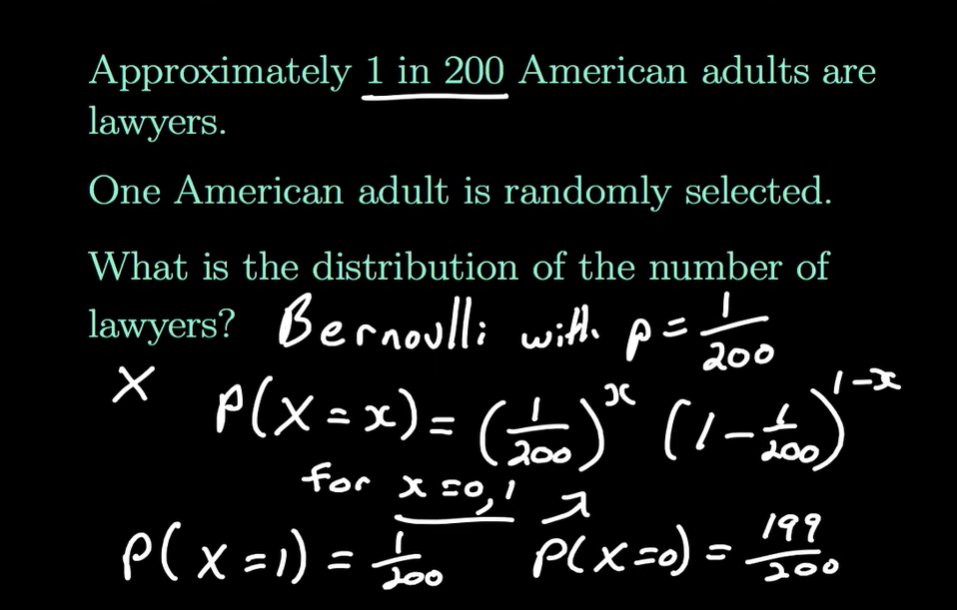 Approximately 1 in 200 American adults are
lawyers.
One American adult is randomly selected.
What is the distribution of the number of
lawyers? Bernoulli with p = 1/200
X P(X = x) = (1/200)^x (1 - 1/200)^1-x
for x = 0, 1
P(X = 1) = 1/200 P(X = 0) = 199/200